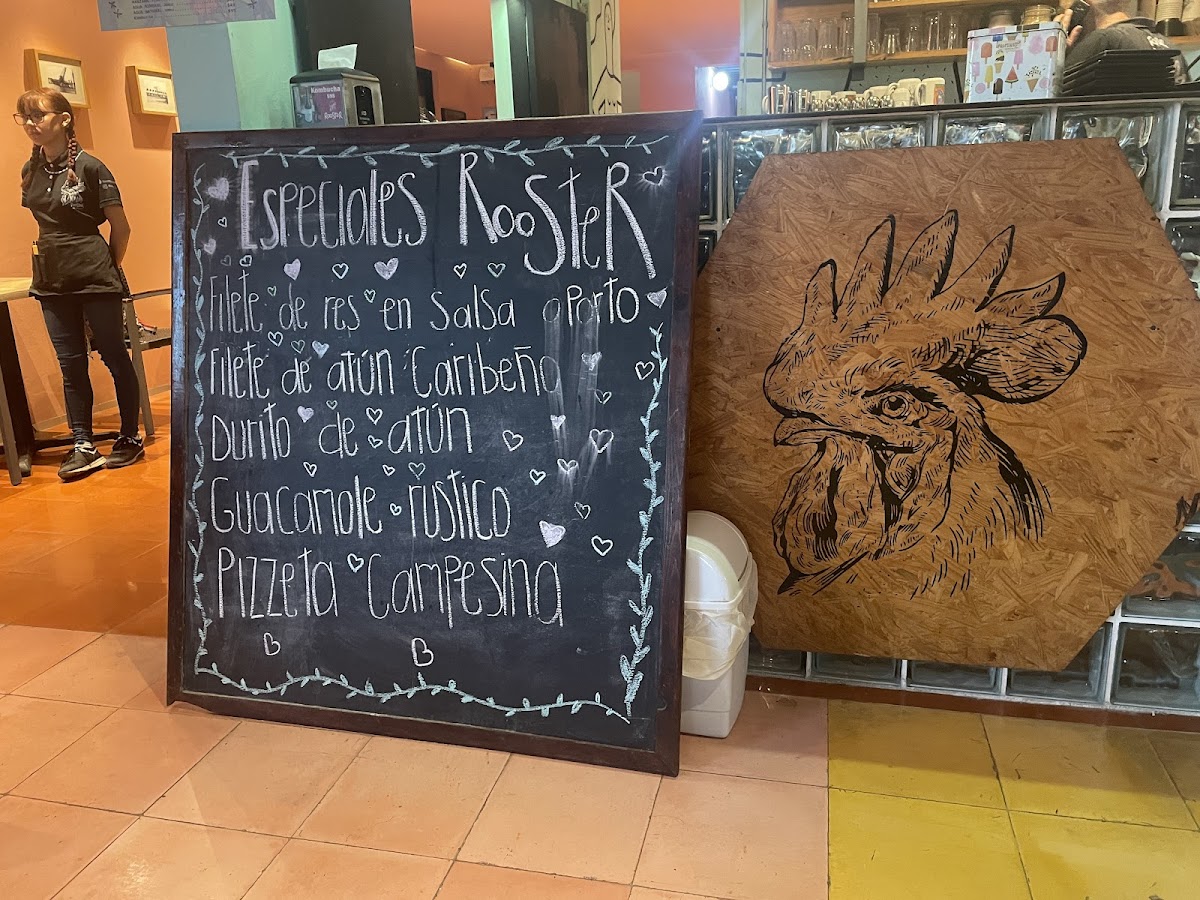 Kombucha
EspecialeS RooSteR
Filete de res en Salsa oporto
Filete de atún Caribeño
Durito de atún
Guacamole rustico
Pizzeta Campesina